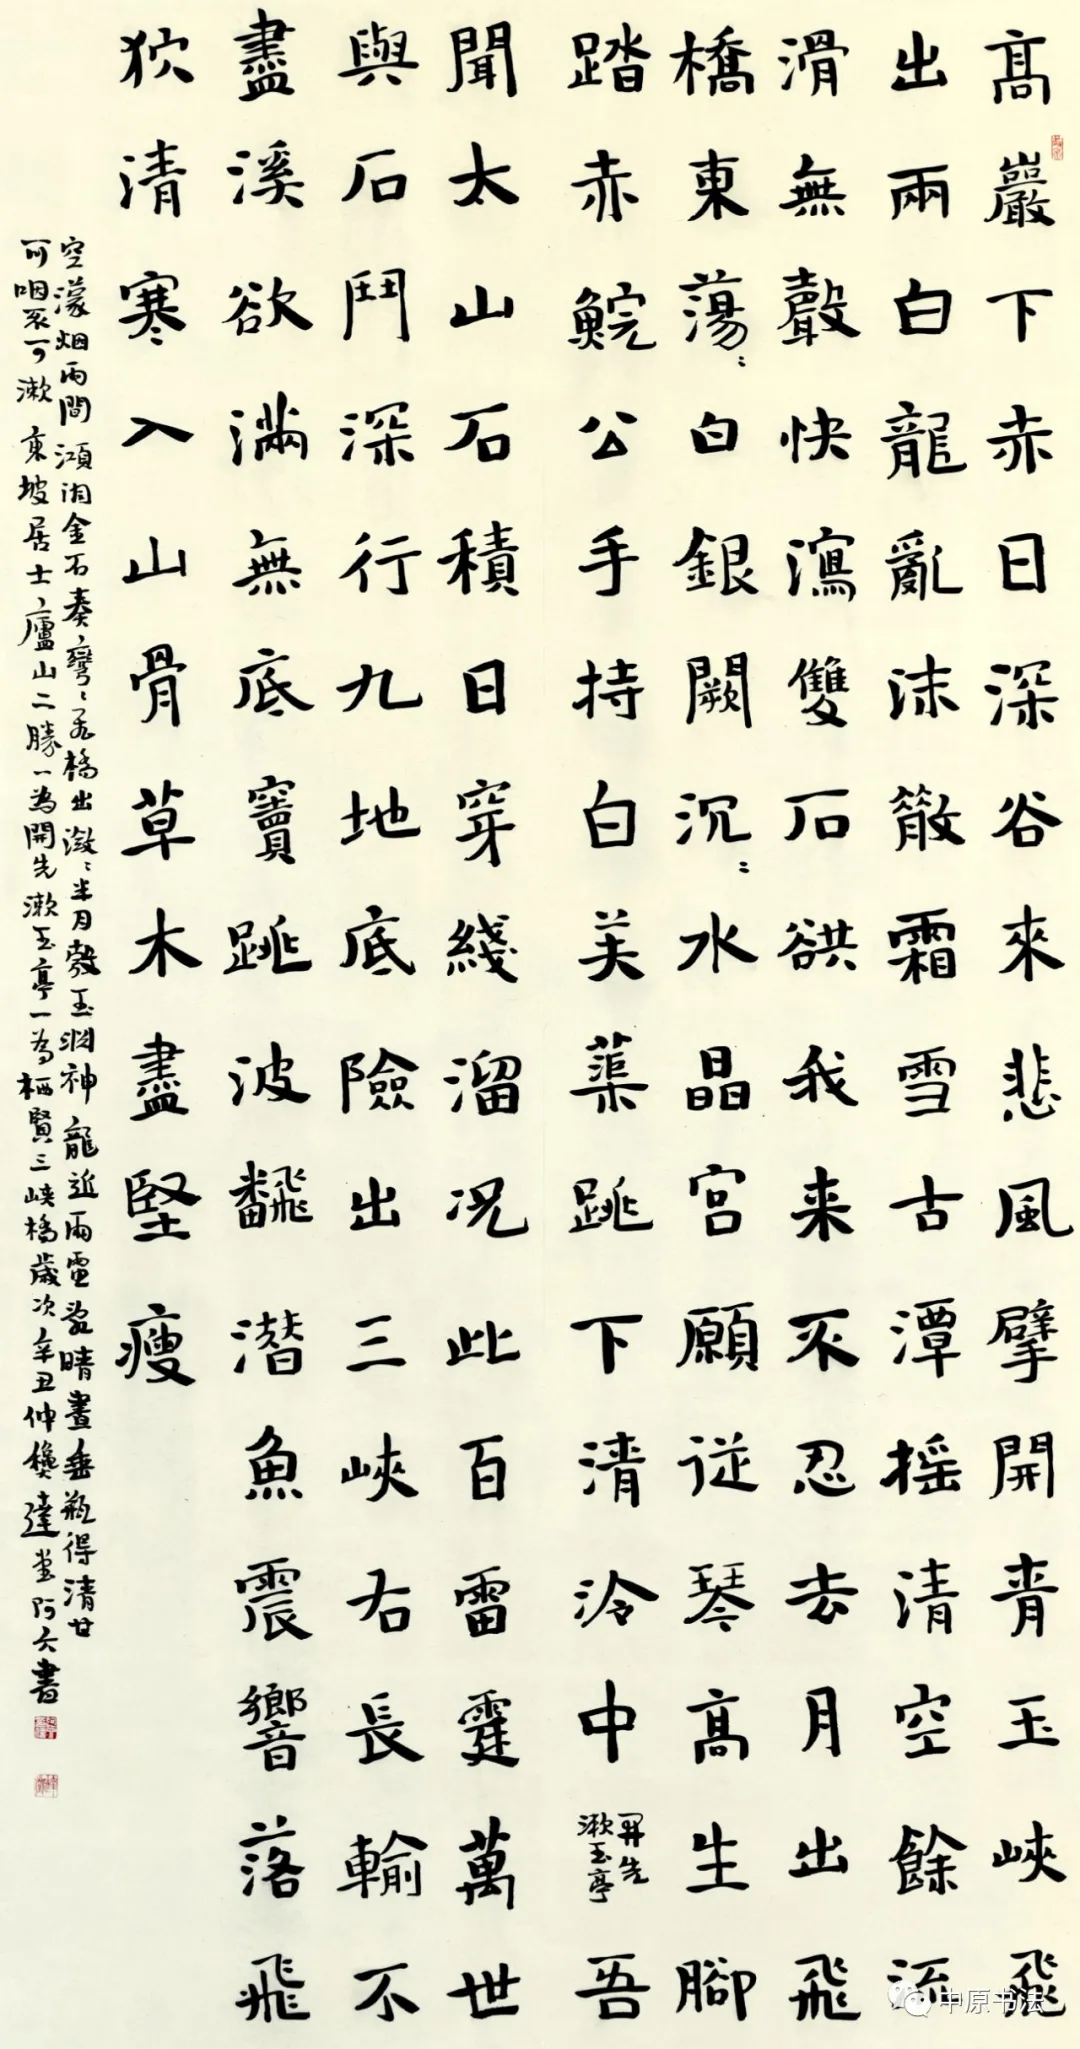 高巖下赤日深谷來悲風擘開青玉峽飛
出兩白龍亂沫散霜雪古潭摇清空餘流
滑無聲快瀉雙石谼我来不忍去月出飛
橋東蕩〻白銀闕沉〻水晶宮願従琴高生腳
踏赤鯇公手持白芙蕖跳下清泠中
開先
漱玉亭
吾
聞太山石積日穿綫溜况此百雷霆萬世
與石鬥深行九地底險出三峽右長輸不
盡溪欲滿無底竇跳波飜潛魚震響落飛
狖清寒入山骨草木盡堅瘦
空濛烟雨間澒洞金石奏彎〻飛橋出瀲〻半月彀玉淵神龍近雨雹亂晴晝垂瓶得清甘
可咽不可漱東坡居士廬山二勝一為開先漱玉亭一為栖賢三峽橋歲次辛丑仲達堂阿六書
中原书法